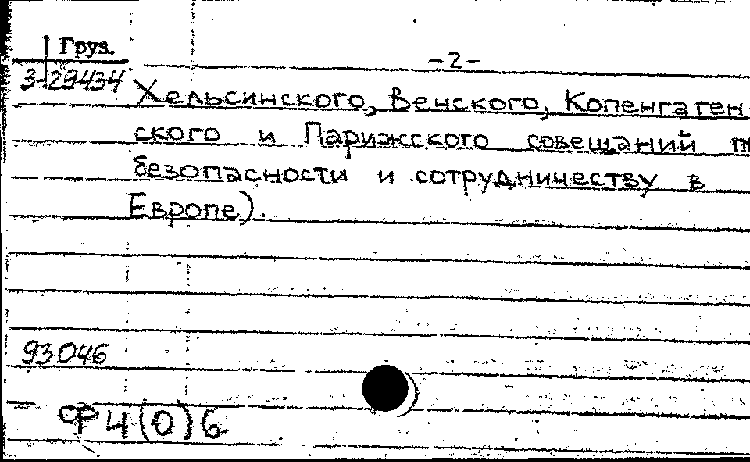 Груз.
-2-
3-29434
Хельсинского, Венского, Копенгаген-
ского и Парижского совещаний п
безопасности и сотрудничеству в
Европе).
93046
Ф4(0)6